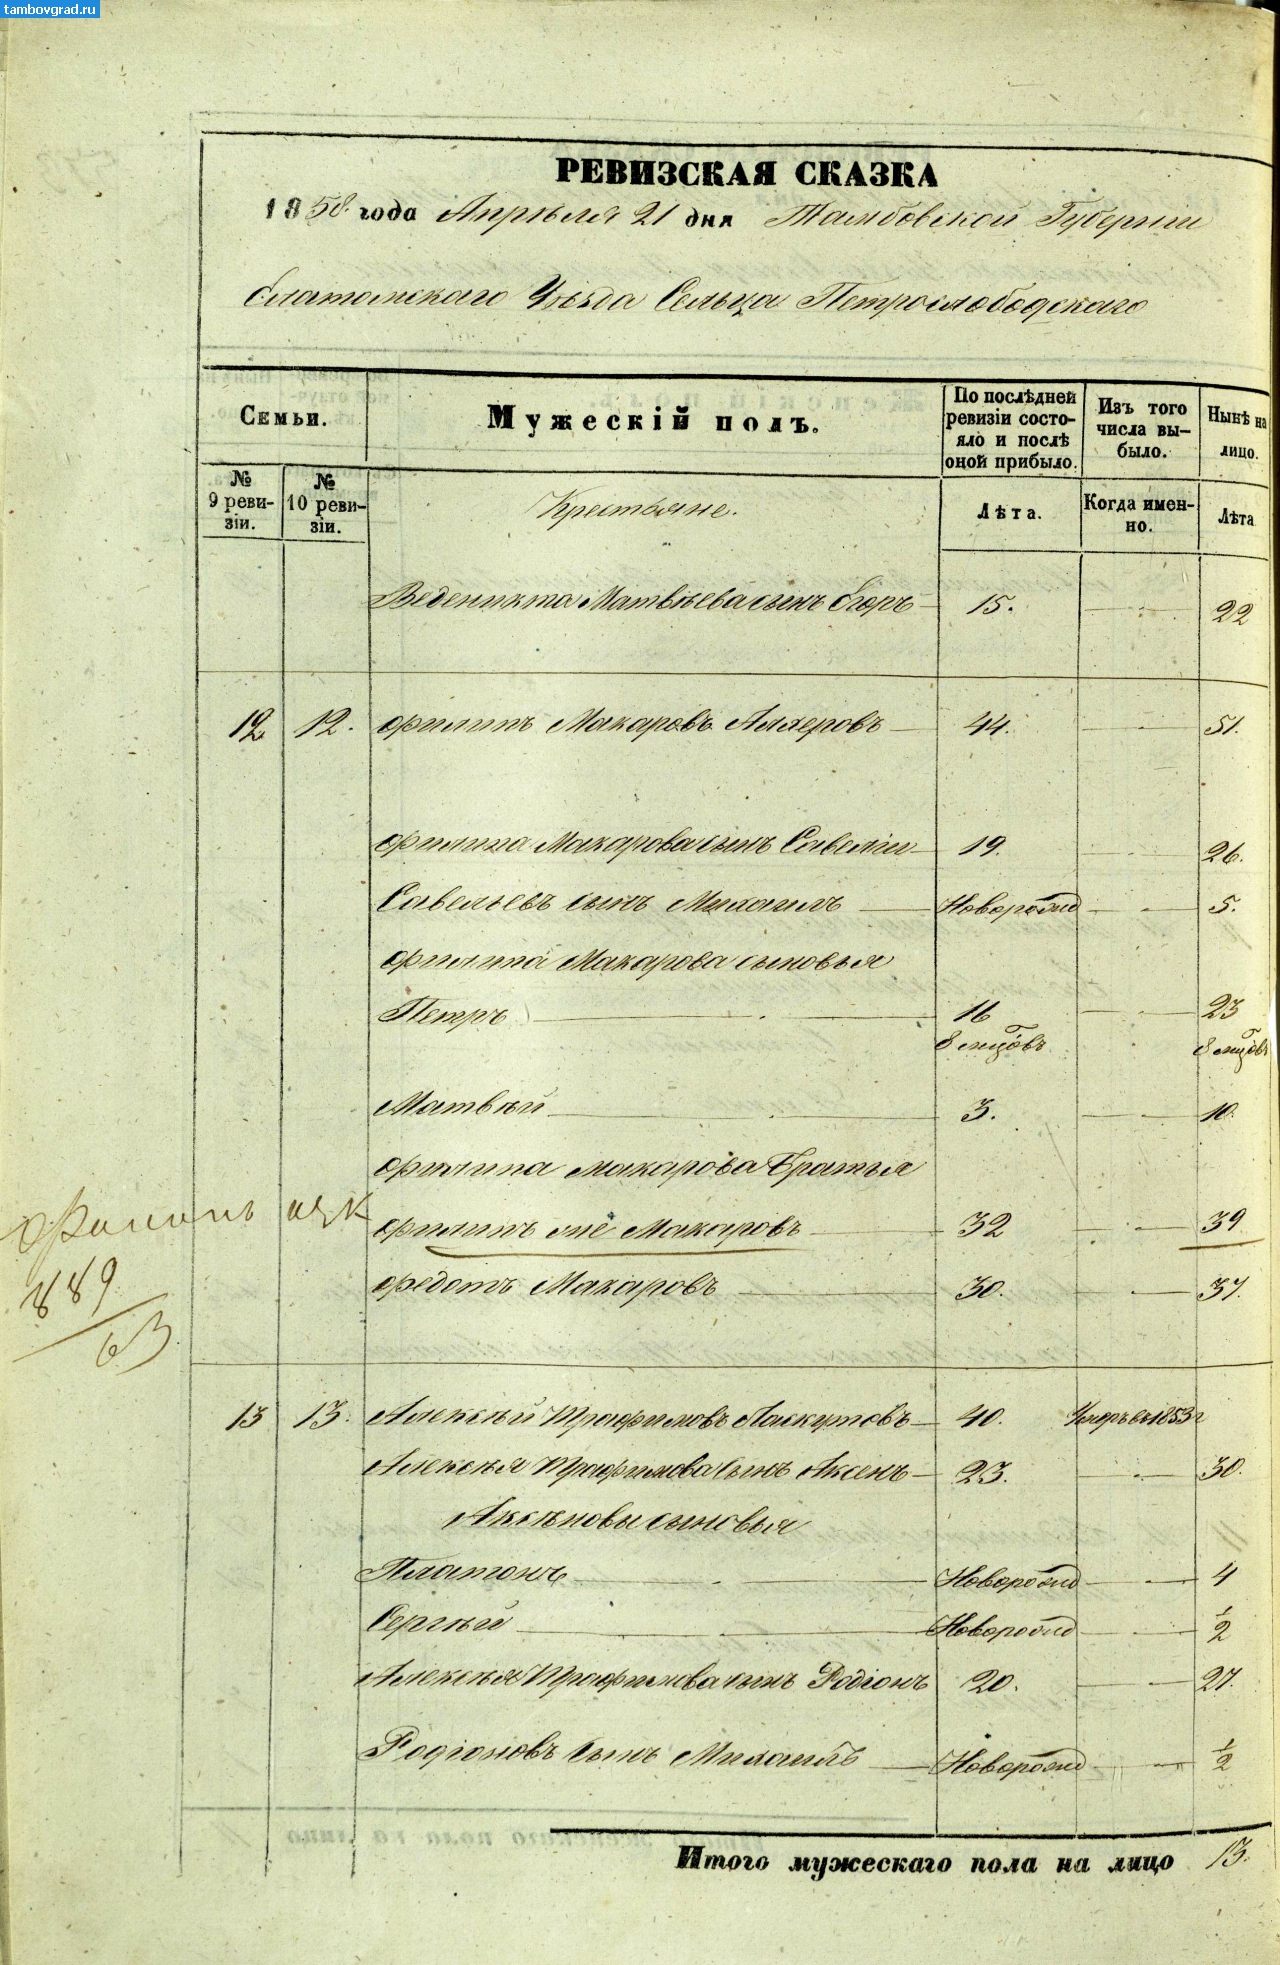 tambovgrad.ru
РЕВИЗСКАЯ СКАЗКА
1858. года Апрѣля 21 дня Тамбовской Губерніи
Елатомскаго Уѣзда Сельца Петрослободскаго
Семьи.
Мужескій полъ.
По послѣдней ревизіи состояло и послѣ оной прибыло.
Изъ того числа вы-было.
Нынѣ на лицо.
№ 9 реви-зіи.
№ 10 реви-зіи.
Крестьяне.
Лѣта.
Когда имен-но.
Лѣта
Веденикта Матвѣева сынъ Егоръ 15. 22
12 12. Филипъ Макаровъ 44. 51.
Филипа Макарова сынъ Савелій 19. 26.
Савельевъ сынъ Михаилъ Новорожд 5.
Филипа Макарова сыновья
Петръ 16 23
8 мцовъ 8 мцовъ
Матвѣй 3. 10.
Филипа Макарова Братья
Филипъ же Макаровъ 32 39
Федотъ Макаровъ 30. 37.
889
63
13 13. Алексѣй Трафимовъ Лоскутовъ 40. Умеръ въ 1853 г
Алексѣя Трафимова сынъ Аксенъ 23. 30.
Аксѣновы сыновья
Платонъ Новорожд 4
Сергѣй Новорожд 1/2
Алексѣя Трафимова сынъ Родіонъ 20. 27.
Родіоновъ сынъ Михаилъ Новорожд 1/2
Итого мужескаго пола на лицо 13.